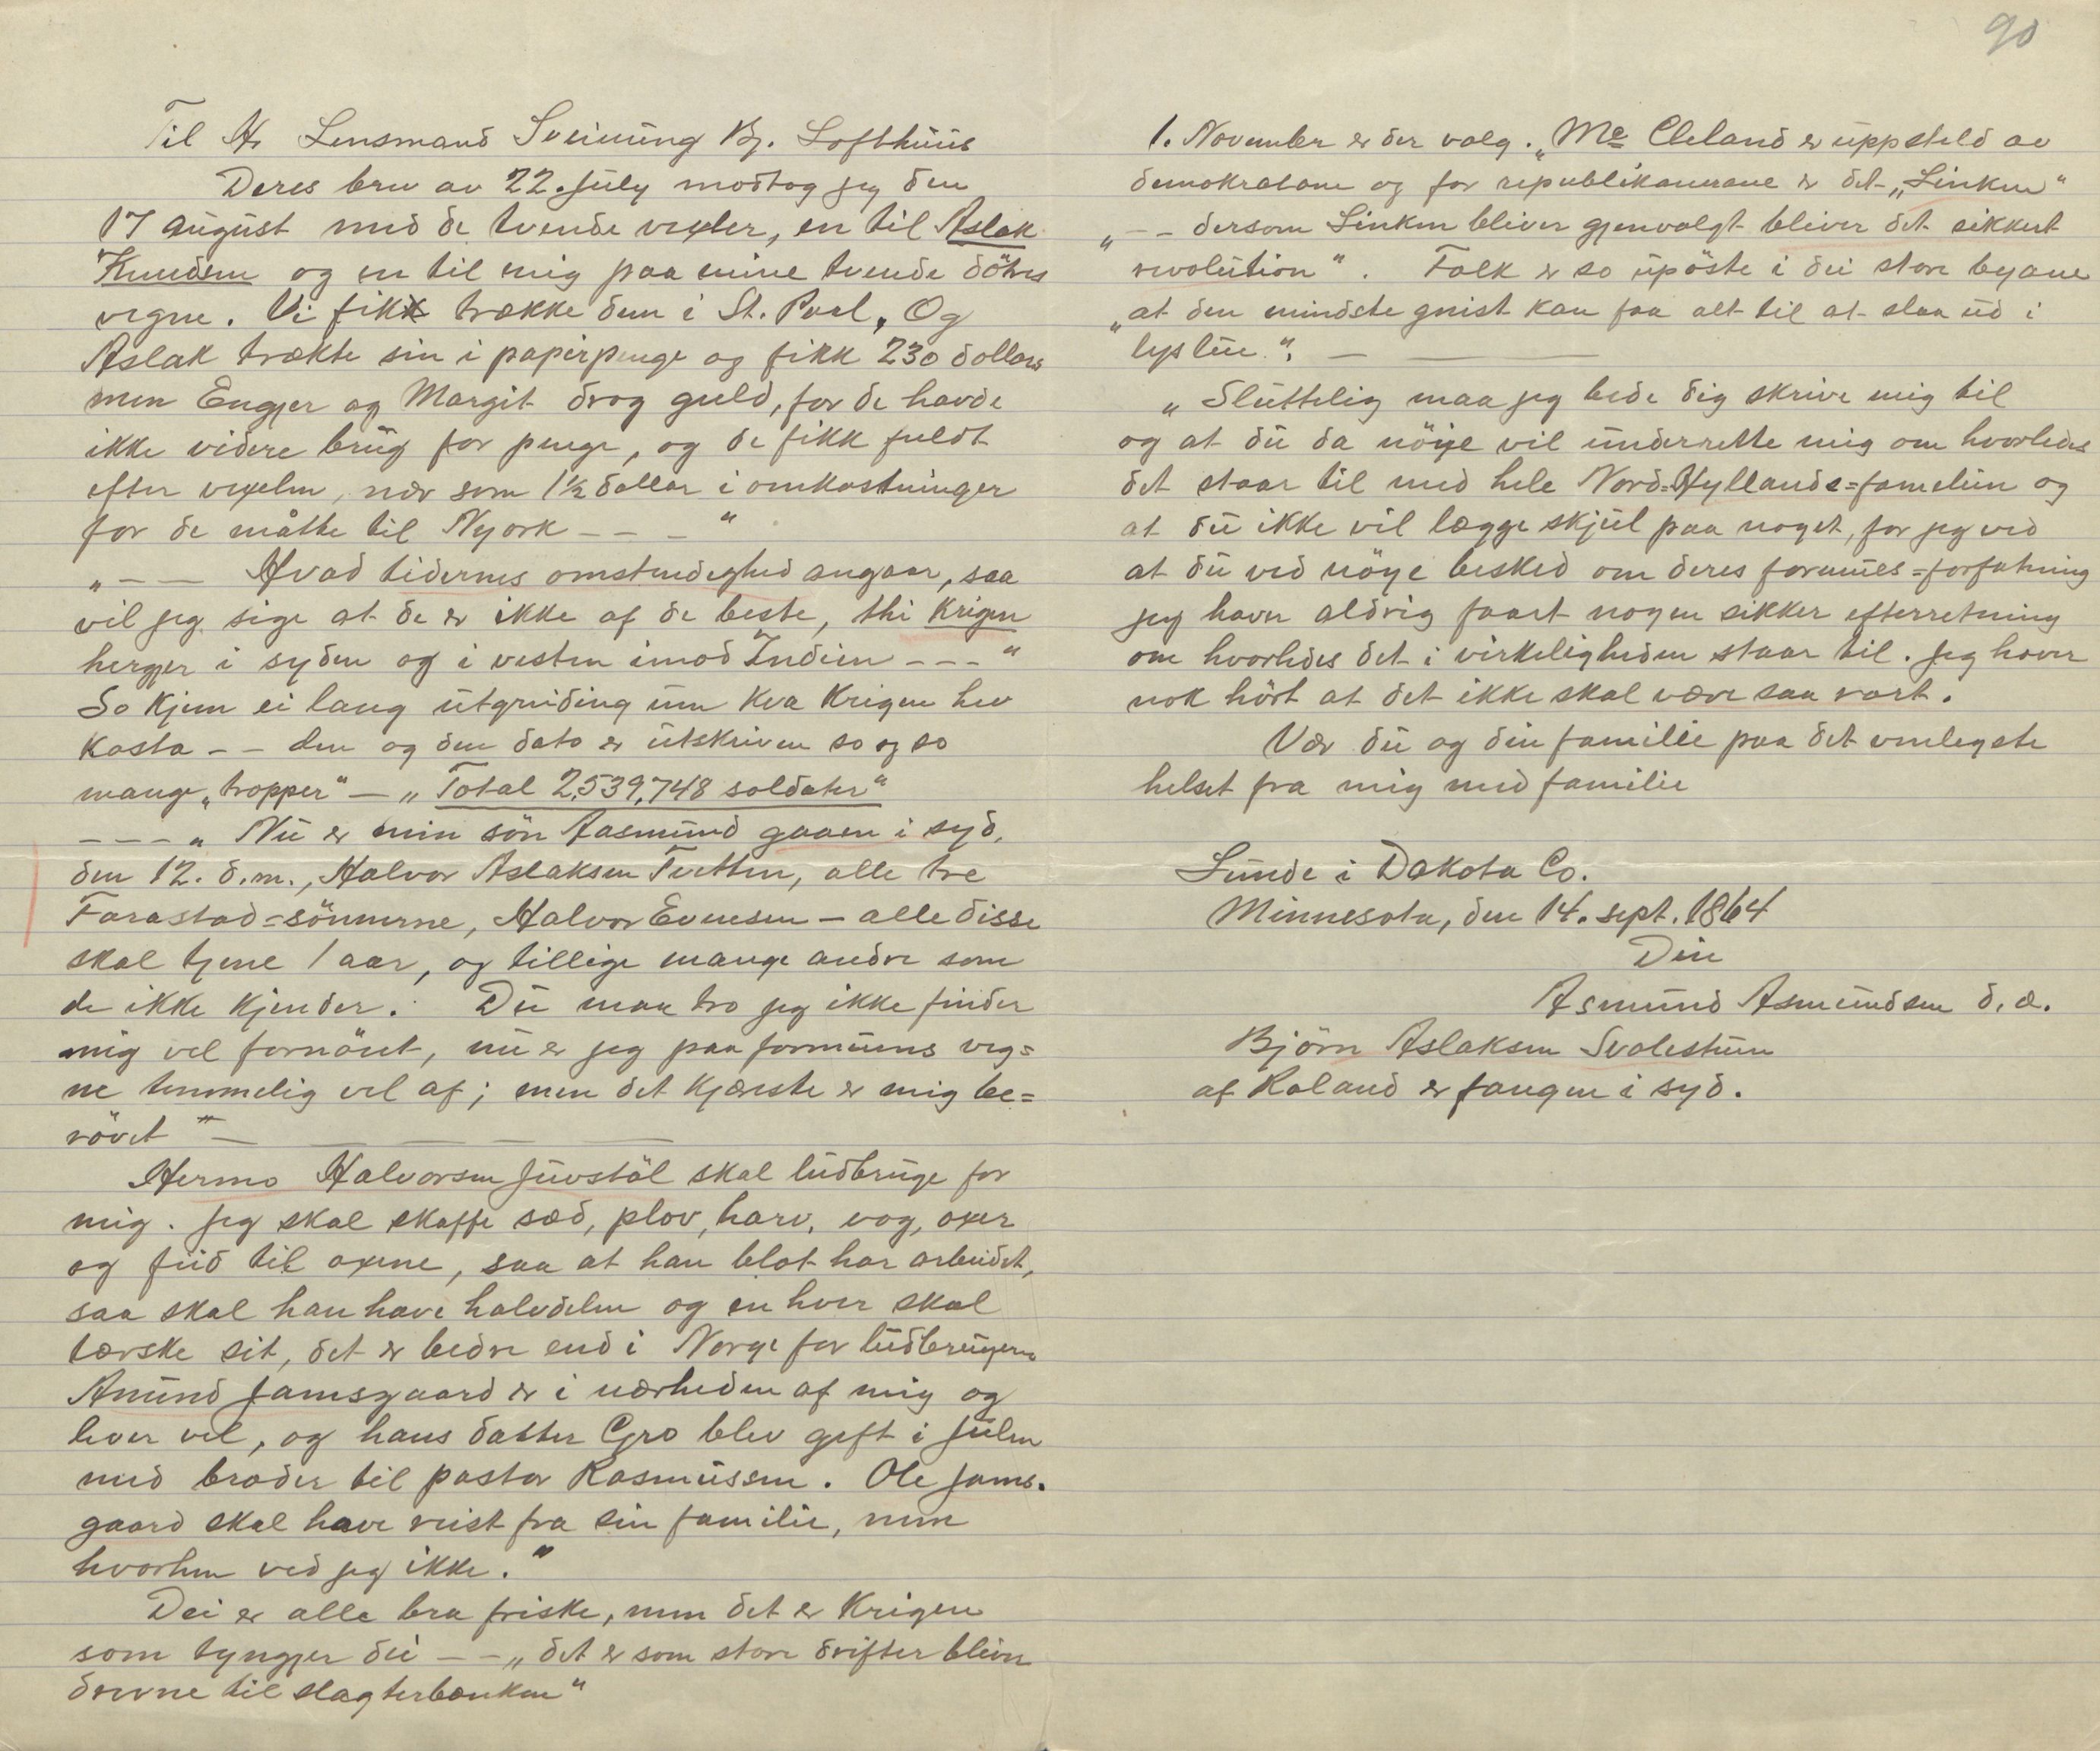 90
Til Hr Lensmand Sveinung Bj. Lofthuus
Deres brev av 22. July modtog jeg den
17 august med de tvende vexler, en til Aslak
Knudsen og en til mig paa mine tvende dötres
vegne. Vi fik trække dem i St. Paal, Og
Aslak trækte sin i papirpenge og fikk 230 dollars
men Engjer og Margit drog guld, for de havde
ikke videre brug for penge, og de fikk fuldt
efter vexelen, nær som 1½ dollar i omkostninger
for de måtte til Nyork - - - "
" - - Hvad tidernes omstendeghed angaar, saa
vil jeg sige at de er ikke af de beste, thi Krigen
herger i syden og i vesten imod Indien - - - "
So kjem ei lang utgreiding um kva Krigen hev
kosta - - den og den dato er utskriven so og so
mange „tropper" - „Total 2,539,748 soldater"
- - - „ Nu er min sön Aasmund gaaen i syd,
den 12. d.m., Halvor Aslaksen Tvetten, alle tre
Farastad=sönnerne, Halvor Evensen - alle disse
skal tjene 1 aar, og tillige mange andre som
de ikke kjender. Du maa tro jeg ikke finder
mig vel fornöiet, nu er jeg paa formuens veg=
ne temmelig vel af; men det kjæreste er mig be=
rövet" -
Hermo Halvorsen Juvstöl skal ludbruge for
mig. Jeg skal skaffe sæd, plov, harv, vog, oxer
og fud til oxene, saa at han blot har arbeidet,
saa skal han have halvdelen og en hver skal
tærske sit, det er bedre end i Norge for ludbrugern
Anund Jamsgaard er i nærheden af mig og
lever vel, og hans datter Gro blev gift i Julen
med broder til pastor Rasmussen. Ole Jams-
gaard skal have reist fra sin familie, men
hvorhen ved jeg ikke."
Dei er alle bra friske, men det er Krigen
som tyngjer dei - - „det er som store drifter bleven
drevne til slagterbænken"
1. November er der valg. „Mc Cleland er uppsteld av
demokratane og for republikanerane er det „Linken"
„ - - dersom Linken bliver gjenvalgt bliver det sikkert
revolution". Folk er so upöste i dei store byane
„at den mindste gnist kan faa alt til at slaa ud i
lysluc". -
„Sluttelig maa jeg bede dig skrive mig til
og at du da nöye vil underrette mig om hvorledes
det staar til med hele Nord=Hyllands=famelien og
at du ikke vil lægge skjul paa noget, for jeg ved
at du ved nöye besked om deres formues=forfatning
jeg haver aldrig faaet nogen sikker efterretning
om hvorledes det i virkeligheden staar til. Jeg haver
nok hört at det ikke skal være saa rart.
Vær du og din familie paa det venlegste
helset fra mig med familie
Lunde i Dakota Co.
Minnesota, den 14. sept. 1864
Din
Asmund Asmundsen d. æ.
Björn Aslaksen Svalestuen
af Raland er fangen i syd.